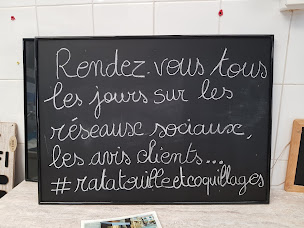 Rendez-vous tous
les jours sur les
réseaux sociaux,
les avis clients...
#ratatouilleetcoquillages